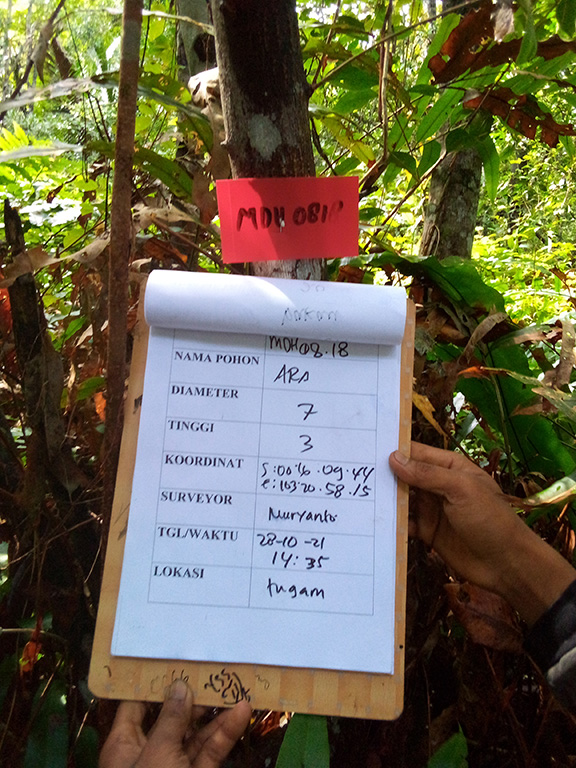 MDH 0818
MDH08.18
NAMA POHON ARA
DIAMETER 7
TINGGI 3
KOORDINAT S:00°16.09.44
E:103°20.58.15
SURVEYOR Nuryanto
TGL/WAKTU 28-10-21
14:35
LOKASI tugam